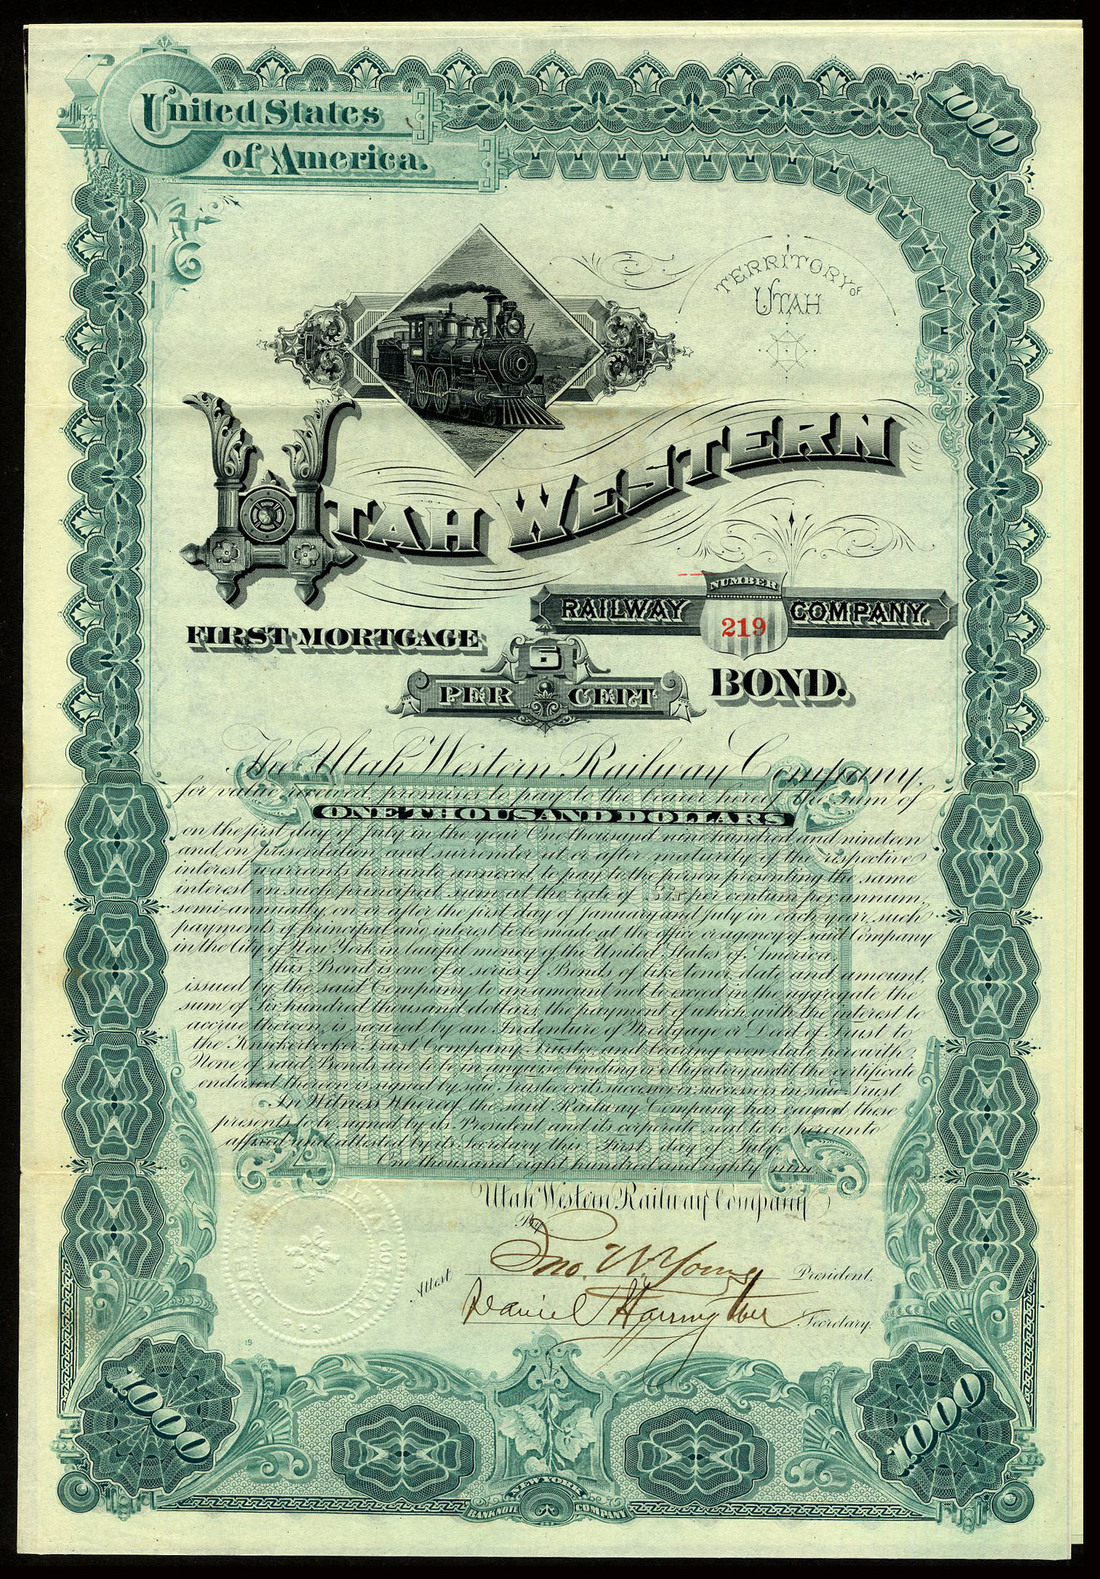 United States
of America.
1000
TERRITORY OF
UTAH
UTAH WESTERN
NUMBER
RAILWAY 219 COMPANY.
FIRST MORTGAGE
6
PER CENT
BOND.
The Utah Western Railway Company,
for value received, promises to pay to the bearer hereof the sum of
ONE THOUSAND DOLLARS
on the first day of July in the year One thousand nine hundred and nineteen
and, on presentation and surrender at or after maturity of the respective
interest warrants hereunto annexed, to pay to the person presenting the same
interest on such principal sum at the rate of six per centum per annum,
semi-annually, on or after the first day of January and July in each year, such
payments of principal and interest to be made at the office or agency of said Company
in the City of New York in lawful money of the United States of America.
This Bond is one of a series of Bonds of like tenor, date and amount,
issued by the said Company to an amount not to exceed in the aggregate the
sum of Six hundred thousand dollars the payment of which with the interest to
accrue thereon, is secured by an Indenture of Mortgage or Deed of Trust to
the Knickerbocker Trust Company, Trustee, and bearing even date herewith.
None of said Bonds are to be in anywise binding or obligatory until the certificate
endorsed thereon is signed by said Trustee or its successor or successors in said Trust.
In Witness Whereof, the said Railway Company has caused these
presents to be signed by its President and its corporate seal to be hereunto
affixed and attested by its Secretary this First day of July,
One thousand eight hundred and eighty nine
Utah Western Railway Company
By
Jno. W. Young President.
Attest
Daniel Harrington Secretary.
19
1000
1000
NEW YORK
BANKNOTE COMPANY